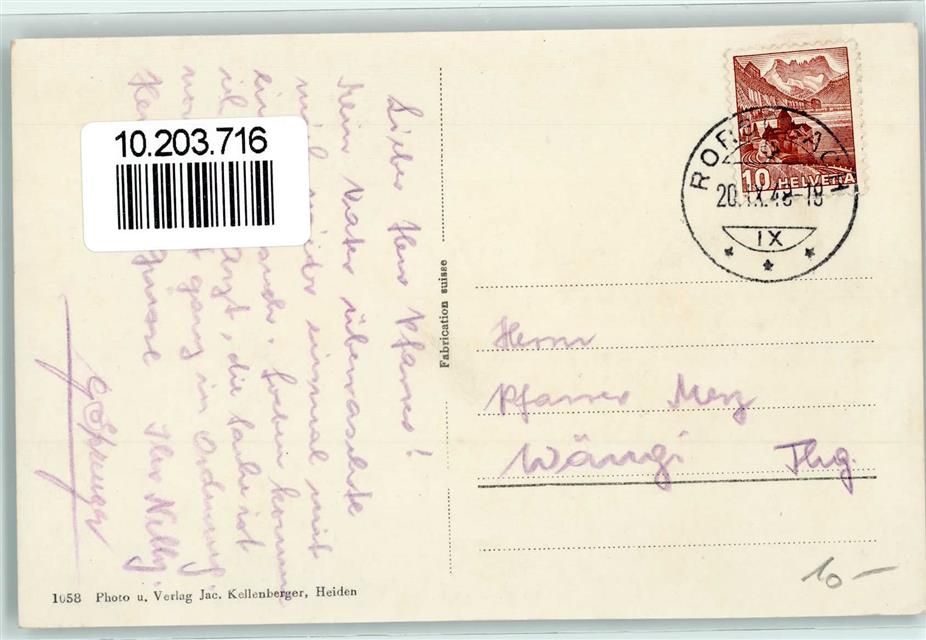 10.203.716
Lieber Herr Pfarrer!
Mein Vater überraschte
mich wieder einmal mit
einem
arzt, die Sache ist
ganz in Ordnung.
Ihre Nelly.
G Spengler
Fabrication suisse
10 HELVETIA
RORSCHACH
20.IX.48-18
IX
Herrn
Pfarrer Merz
Wängi Thg.
10-
1058 Photo u. Verlag Jac. Kellenberger, Heiden